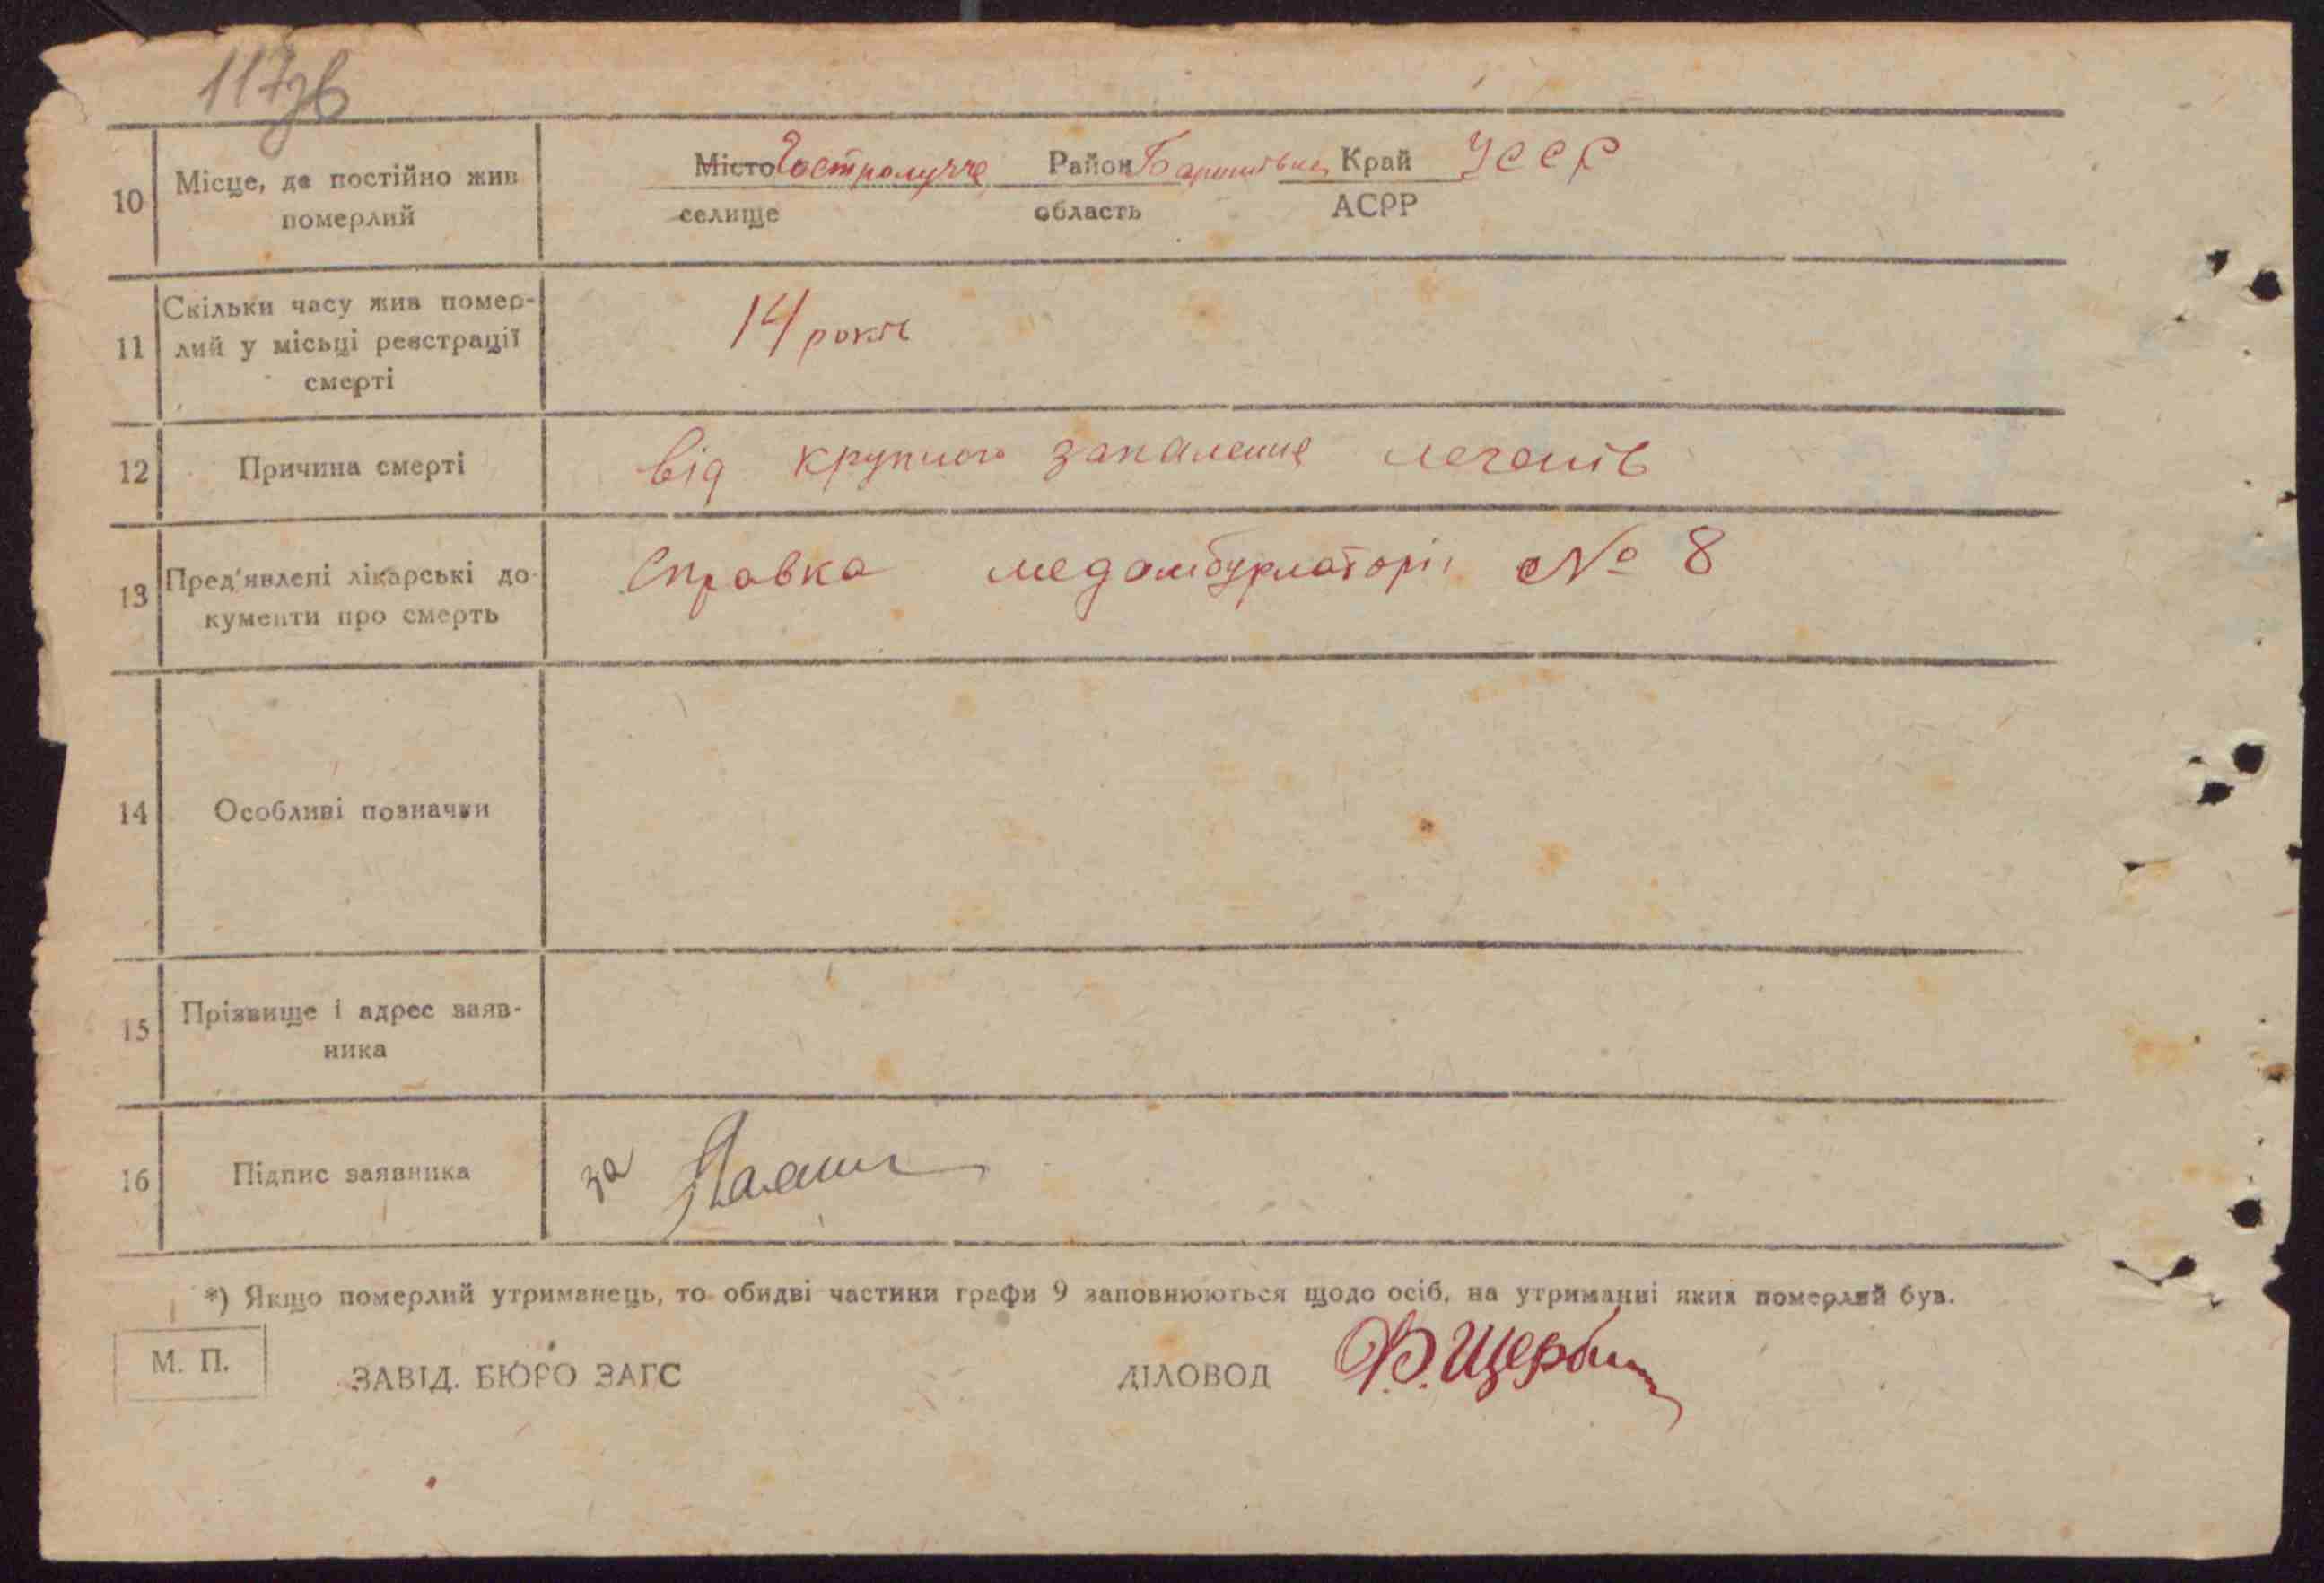 117зв
10 Місце, де постійно жив Місто Гостролучче Район Баришівка Край УССР
померлий селище область АСРР
Скільки часу жив помер-
11 лий у місьці реєстрації 14 років
смерті
12 Причина смерті від крупного запалення легенів
13 Пред'явлені лікарські до- Справка медамбурлаторіі № 8
кументи про смерть
14 Особливі позначки
15 Прізвище і адрес заяв-
ника
16 Підпис заявника за
*) Якщо померлий утриманець, то обидві частини графи 9 заповнюються щодо осіб, на утриманні яких померлий був.
М. П. ЗАВІД. БЮРО ЗАГС ДІЛОВОД В. Щербина